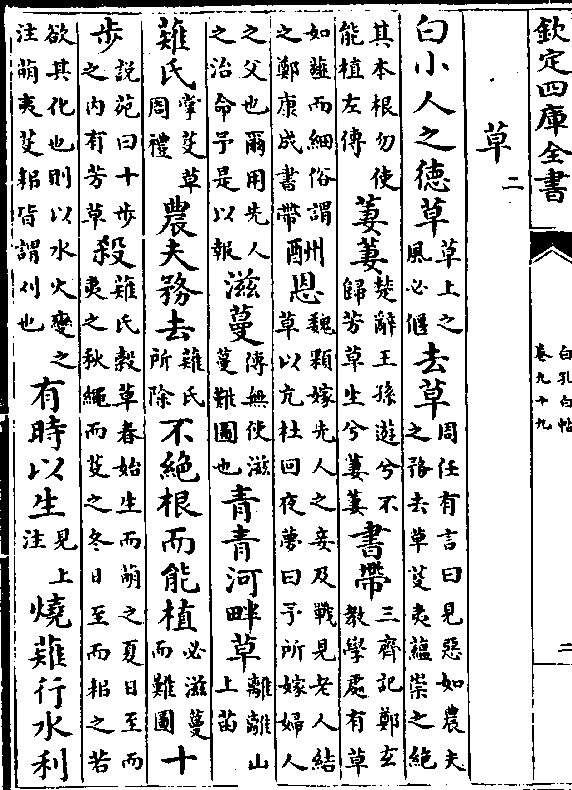 欽定四庫全書
白孔六帖
卷九十九
二
草二
白小人之德草草上之風必偃去草周任有言曰見惡如農夫之務去草芟夷藴崇之絶
其本根勿使能植左傳萋萋楚辭王孫遊兮不歸芳草生兮萋萋書帶三齊記鄭玄教學處有草
如薤而細俗謂之鄭康成書帶酬恩魏顆嫁先人之妾及戰見老人結草以亢杜回夜夢曰予所嫁婦人
之父也爾用先人之治命予是以報滋蔓傳無使滋蔓難圖也青青河畔草離離山上苗
薙氏掌芟草周禮農夫務去薙氏所除不絶根而能植必滋蔓而難圖十
步説苑曰十步之内有芳草殺薙氏穀草春始生而萌之夏日至而夷之秋繩而芟之冬日至而耜之若
欲其化也則以水火變之注萌夷芟耜皆謂刈也有時以生見上注燒薙行水利